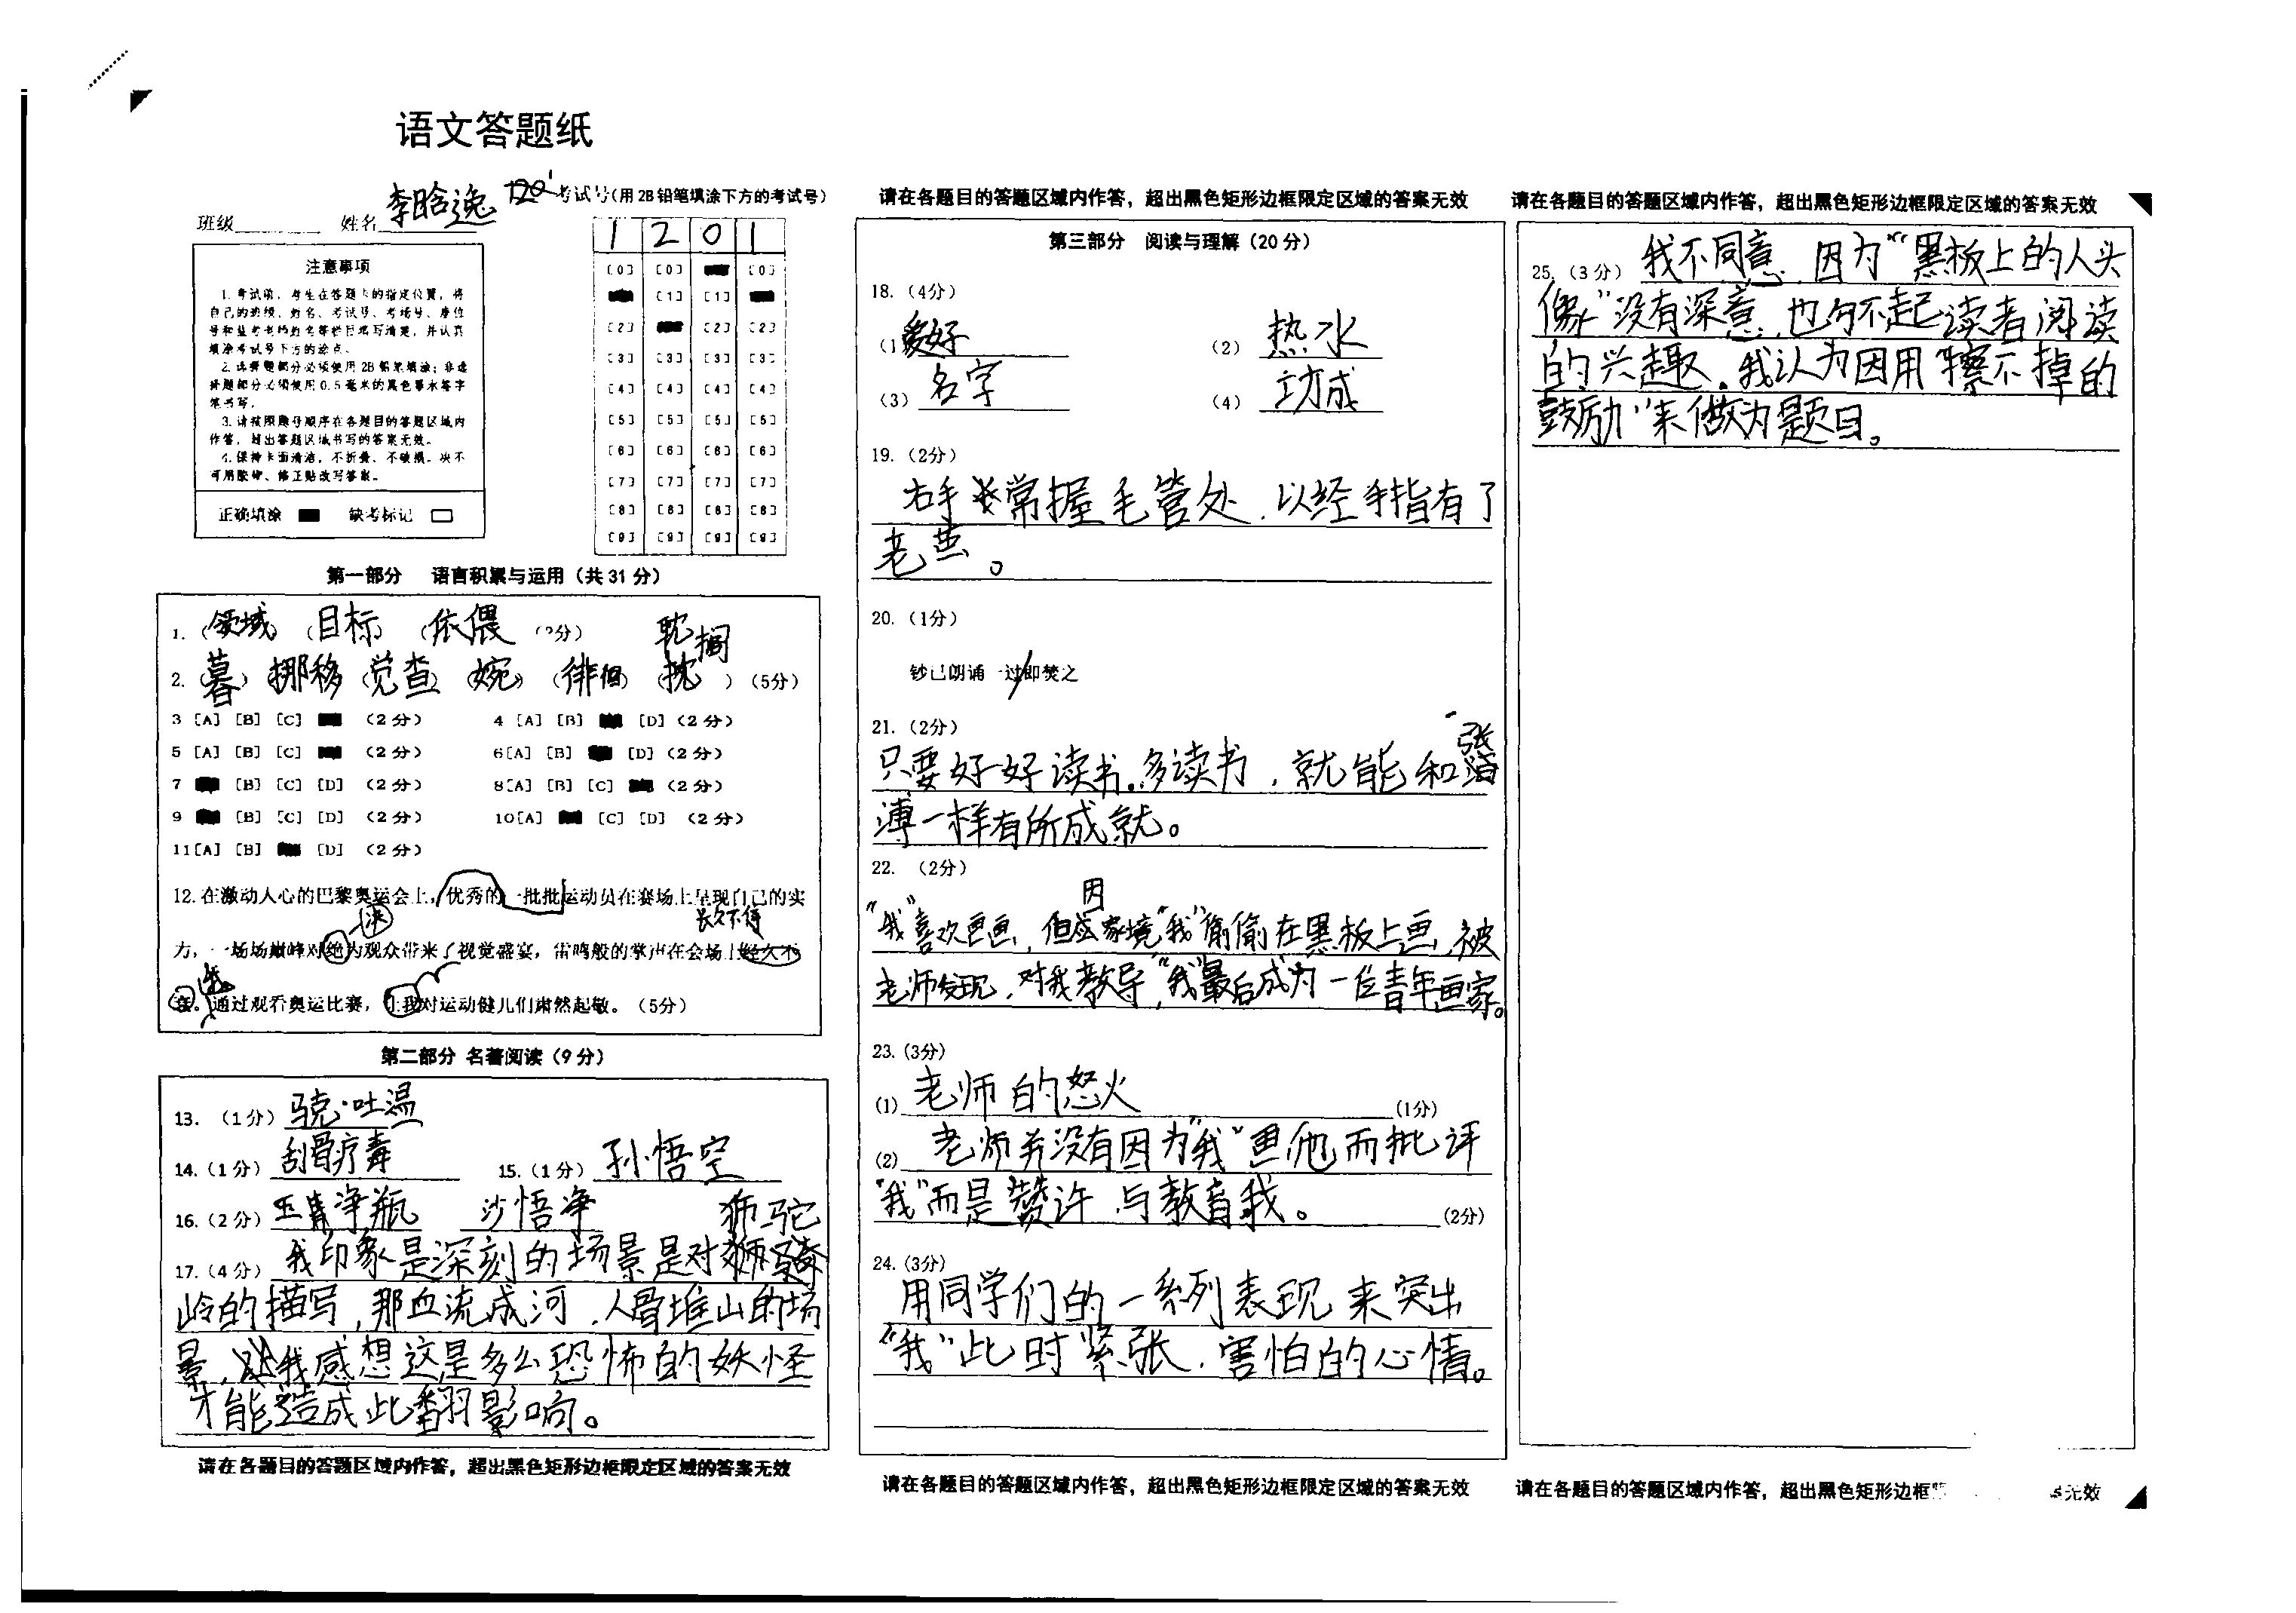 语文答题纸
班级 姓名 李晗逸 考试号(用2B铅笔填涂下方的考试号)
1 2 0 1
注意事项
1.考试前,考生在答题卡的指定位置,将
自己的班级、姓名、考试号、考场号、座位
号和监考老师姓名等栏目填写清楚,并认真
填涂考试号下方的涂点。
2.选择题部分必须使用2B铅笔填涂;非选
择题部分必须使用0.5毫米的黑色墨水签字
笔书写。
3.请按照题号顺序在各题目的答题区域内
作答,超出答题区域书写的答案无效。
4.保持卡面清洁,不折叠、不破损。决不
可用胶带、修正贴改写答案。
正确填涂 缺考标记
[0] [0] [0]
[1] [1]
[2] [2] [2]
[3] [3] [3] [3]
[4] [4] [4] [4]
[5] [5] [5] [5]
[6] [6] [6] [6]
[7] [7] [7] [7]
[8] [8] [8] [8]
[9] [9] [9] [9]
第一部分 语言积累与运用(共31分)
1. (领域) (目标) (依偎 (2分) 耽搁
2. (暮) (挪移 (觉查) (婉) (徘徊) (扰 ) (5分)
3 [A] [B] [C] (2分) 4 [A] [B] [D] (2分)
5 [A] [B] [C] (2分) 6[A] [B] [D] (2分)
7 [B] [C] [D] (2分) 8[A] [B] [C] (2分)
9 [B] [C] [D] (2分) 10[A] [C] [D] (2分)
11[A] [B] [D] (2分)
12.在激动人心的巴黎奥运会上,优秀的一批批运动员在赛场上呈现自己的实
决 长久不停
力,一场场巅峰对绝为观众带来了视觉盛宴,雷鸣般的掌声在会场上经久不
通过观看奥运比赛,让我对运动健儿们肃然起敬。(5分)
第二部分 名著阅读(9分)
13. (1分) 骆·吐温
14.(1分) 刮骨疗毒 15.(1分) 孙悟空
16.(2分) 玉青净瓶 沙悟净 狮驼
17.(4分) 我印象是深刻的场景是对狮
岭的描写,那血流成河,人骨堆山的场
景,让我感想这是多么恐怖的妖怪
才能造成此翻影响。
请在各题目的答题区域内作答,超出黑色矩形边框限定区域的答案无效
请在各题目的答题区域内作答,超出黑色矩形边框限定区域的答案无效
第三部分 阅读与理解(20分)
18.(4分)
(1 爱好 (2) 热水
(3) 名字 (4) 功成
19.(2分)
右手长常握毛管处,以经手指有了
老茧。
20.(1分)
钞已朗诵一过/即焚之
21.(2分)
张
只要好好读书。多读书,就能和
溥一样有所成就。
22. (2分)
因
“我”喜欢画画,但家境“我”偷偷在黑板上画,被
老师发现,对我教导,“我”最后成为一位青年画家。
23.(3分)
(1) 老师的怒火 (1分)
(2) 老师并没有因为“我”画他而批评
“我”而是赞许,与教育我。 (2分)
24.(3分)
用同学们的一系列表现来突出
“我”此时紧张,害怕的心情。
请在各题目的答题区域内作答,超出黑色矩形边框限定区域的答案无效
请在各题目的答题区域内作答,超出黑色矩形边框限定区域的答案无效
25.(3分) 我不同意,因为“黑板上的人头
像”没有深意,也勾不起读者阅读
的兴趣。我认为因用“擦不掉的
鼓励”来做为题目。
请在各题目的答题区域内作答,超出黑色矩形边框 无效